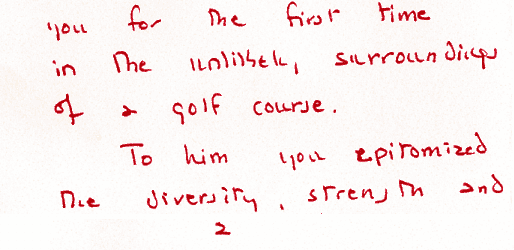 you for the first time
in the unlikely surroundings
of a golf course.
To him you epitomized
the diversity, strength and
2